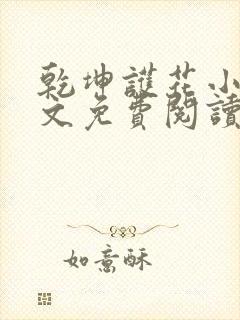 乾坤護花小
文免費閱讀
如意酥